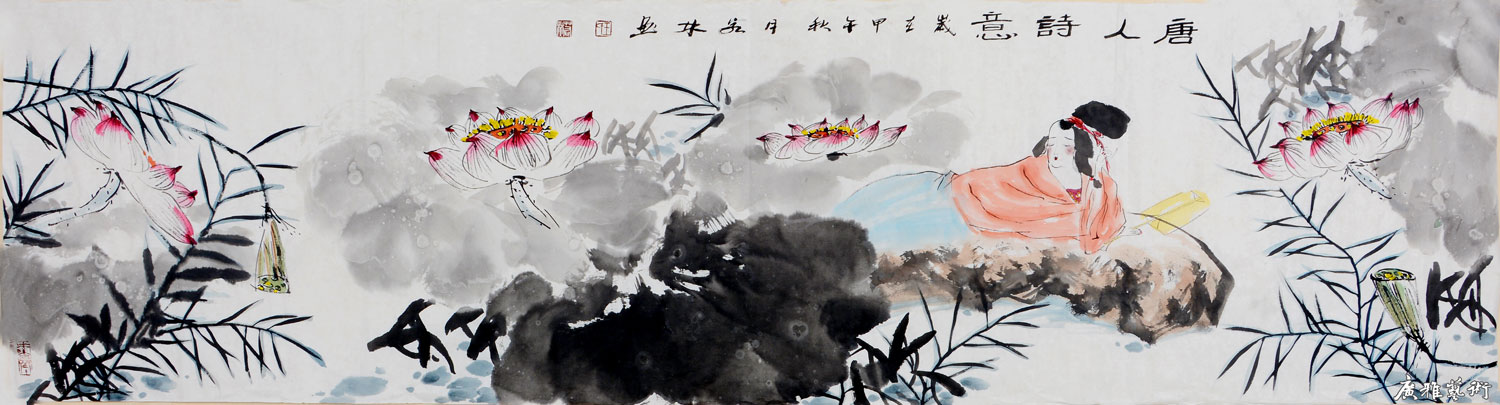 唐人詩意 歲在甲午秋月 林題
廣雅藝術